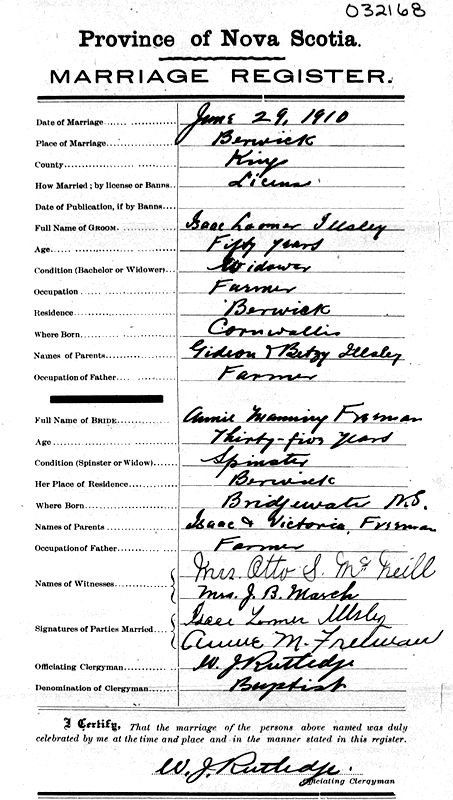 032168
Province of Nova Scotia.
MARRIAGE REGISTER.
Date of Marriage June 29, 1910
Place of Marriage Berwick
County Kings
How Married; by license or Banns License
Date of Publication, if by Banns
Full Name of GROOM Isaac Loomer Illsley
Age Fifty years
Condition (Bachelor or Widower) Widower
Occupation Farmer
Residence Berwick
Where Born Cornwallis
Names of Parents Gideon & Betzy Illsley
Occupation of Father Farmer
Full Name of BRIDE Annie Manning Freeman
Age Thirty-five years
Condition (Spinster or Widow) Spinster
Her Place of Residence Berwick
Where Born Bridgewater N.S.
Names of Parents Isaac & Victoria Freeman
Occupation of Father Farmer
Names of Witnesses Mrs. Otto S. McNeill
Mrs. J. B. March
Signatures of Parties Married Isaac Lomer Illsley
Annie M. Freeman
Officiating Clergyman W. J. Rutledge
Denomination of Clergyman Baptist
I Certify, That the marriage of the persons above named was duly
celebrated by me at the time and place and in the manner stated in this register.
W. J. Rutledge.
Officiating Clergyman